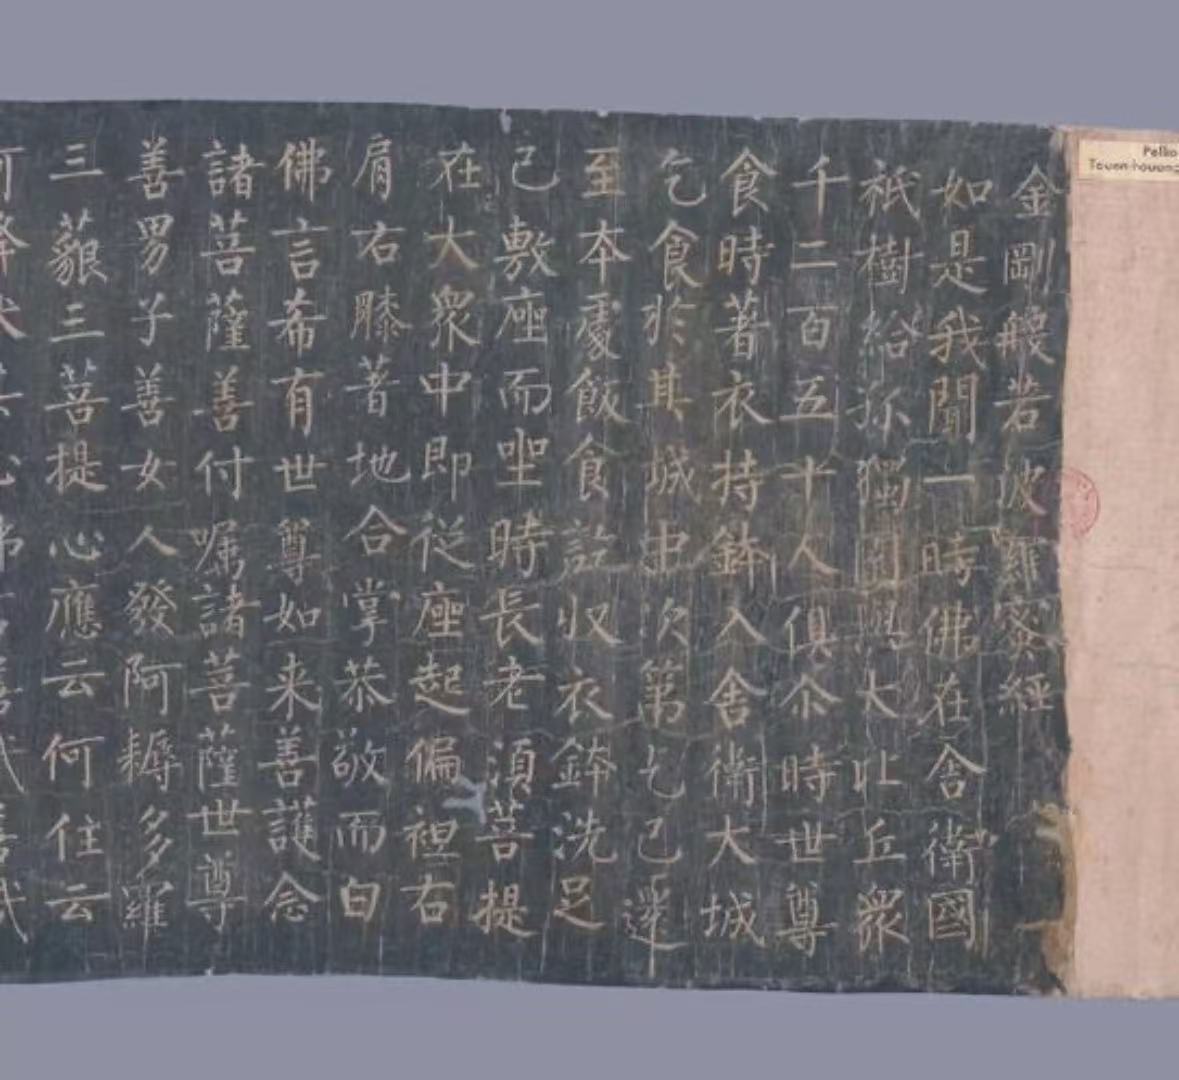 Pellio
Touen-houang
金剛般若波羅蜜經 一
如是我聞一時佛在舍衛國
祇樹給孤獨園與大比丘衆
千二百五十人俱尒時世尊
食時著衣持鉢入舍衛大城
乞食於其城中次第乞已還
至本處飯食訖収衣鉢洗足
已敷座而坐時長老湏菩提
在大衆中即從座起偏袒右
肩右膝著地合掌恭敬而白
佛言希有世尊如来善護念
諸菩薩善付嘱諸菩薩世尊
善男子善女人發阿耨多羅
三藐三菩提心應云何住云